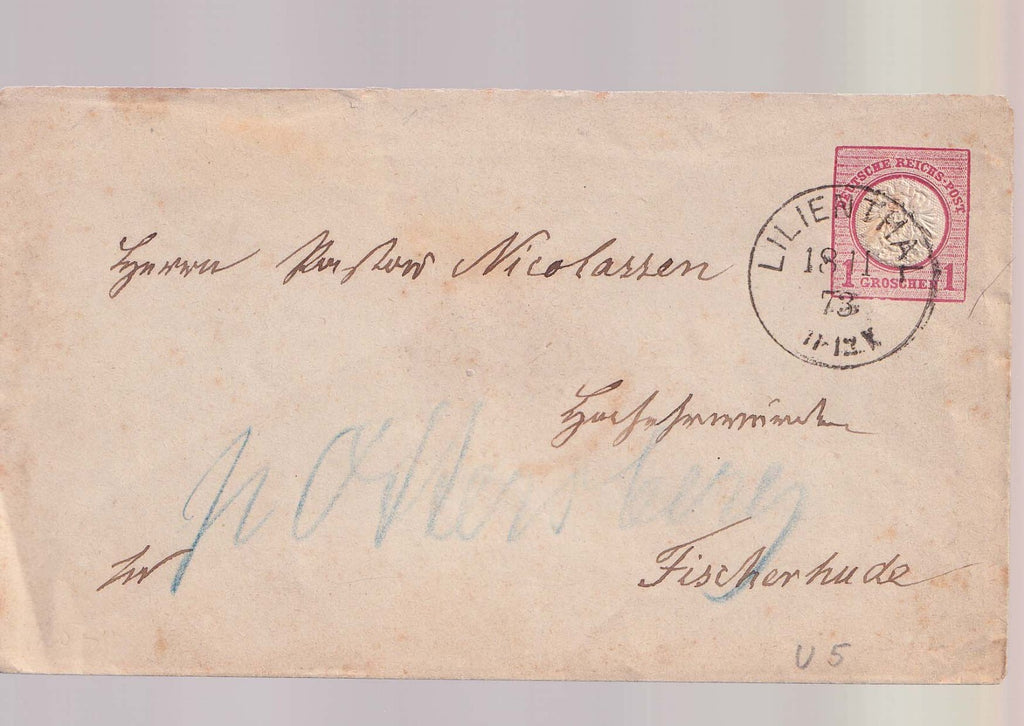 DEUTSCHE REICHS-POST
1 GROSCHEN 1
LILIENTHAL
18 11
73
11-12 V
Herrn Pastor Nicolassen
Hochehrwürden
p Ottersberg
in Fischerhude
U 5